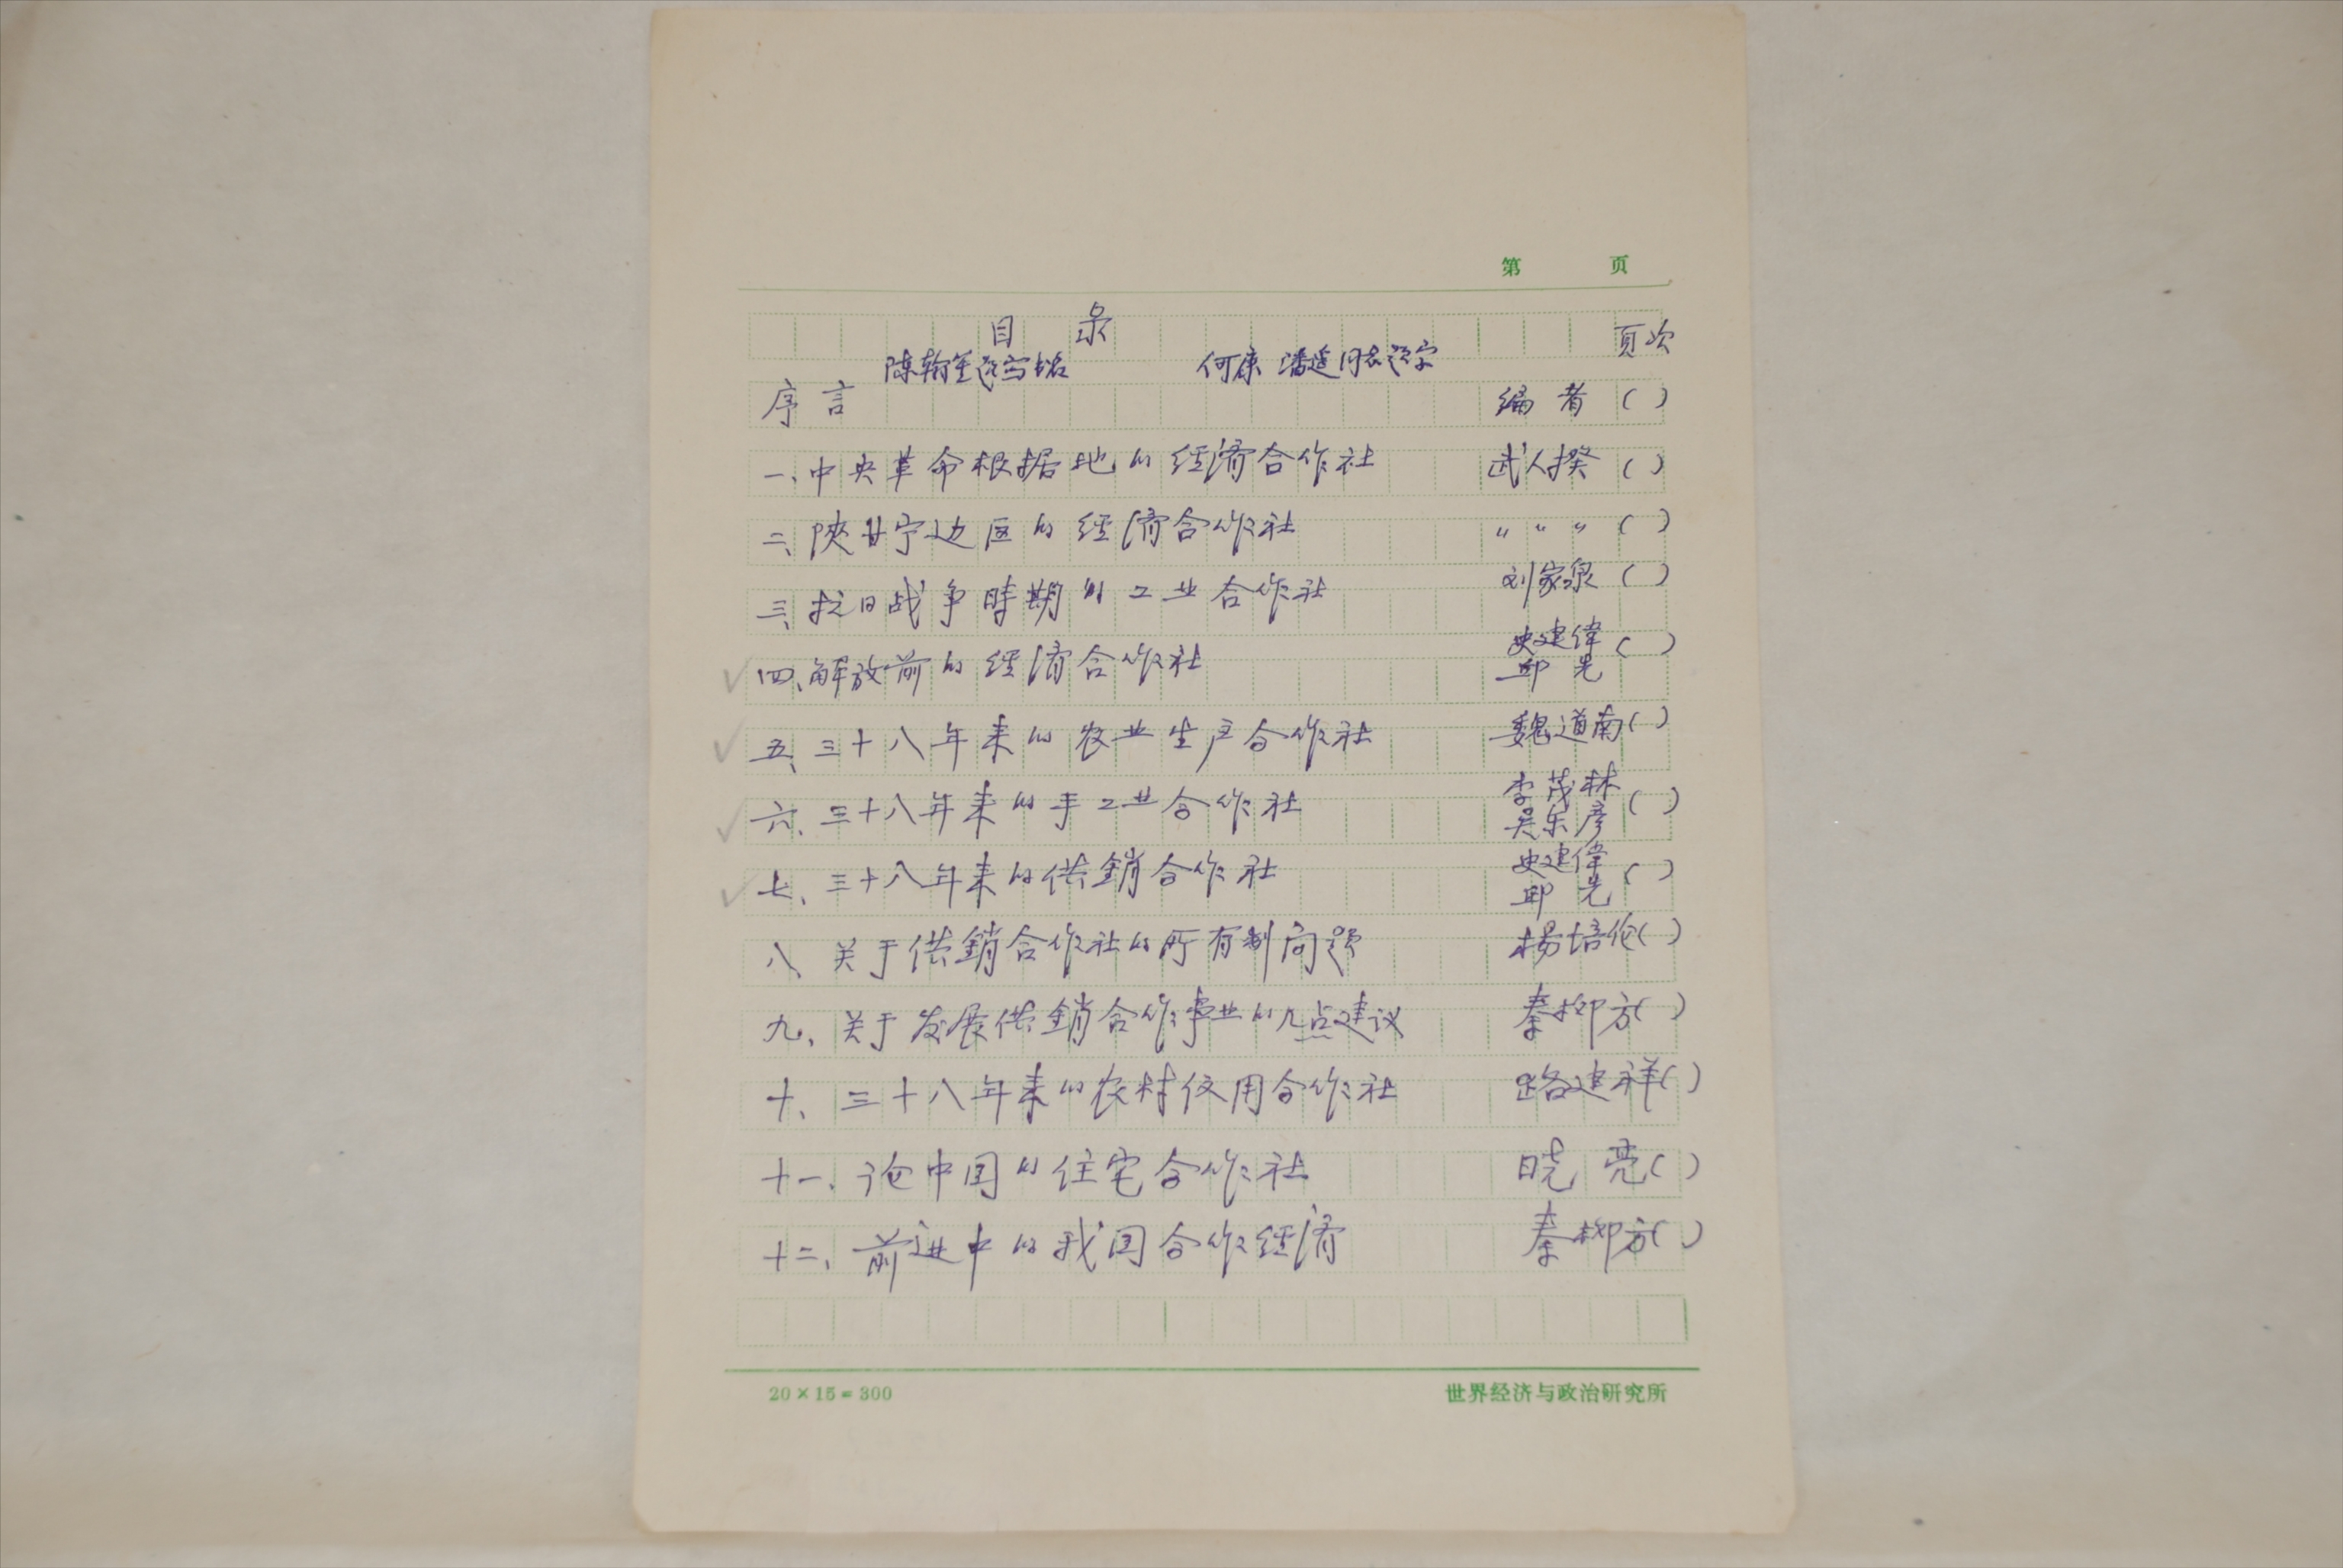 第 页
目 录 页次
陈翰笙题写书名 何康 潘遥同志题字
序言 编者 ( )
一、中央革命根据地的经济合作社 武人揆 ( )
二、陕甘宁边区的经济合作社 〃 〃 〃 ( )
三、抗日战争時期的工业合作社 刘家泉 ( )
四、解放前的经济合作社 史建偉 邱光 ( )
五、三十八年来的农业生产合作社 魏道南 ( )
六、三十八年来的手工业合作社 李茂林 吴乐彦 ( )
七、三十八年来的供銷合作社 史建偉 邱光 ( )
八、关于供銷合作社的所有制问题 楊培伦 ( )
九、关于发展供銷合作事业的几点建议 秦柳方 ( )
十、三十八年来的农村信用合作社 路建祥 ( )
十一、论中国的住宅合作社 晓亮 ( )
十二、前进中的我国合作经济 秦柳方 ( )
20×15=300 世界经济与政治研究所